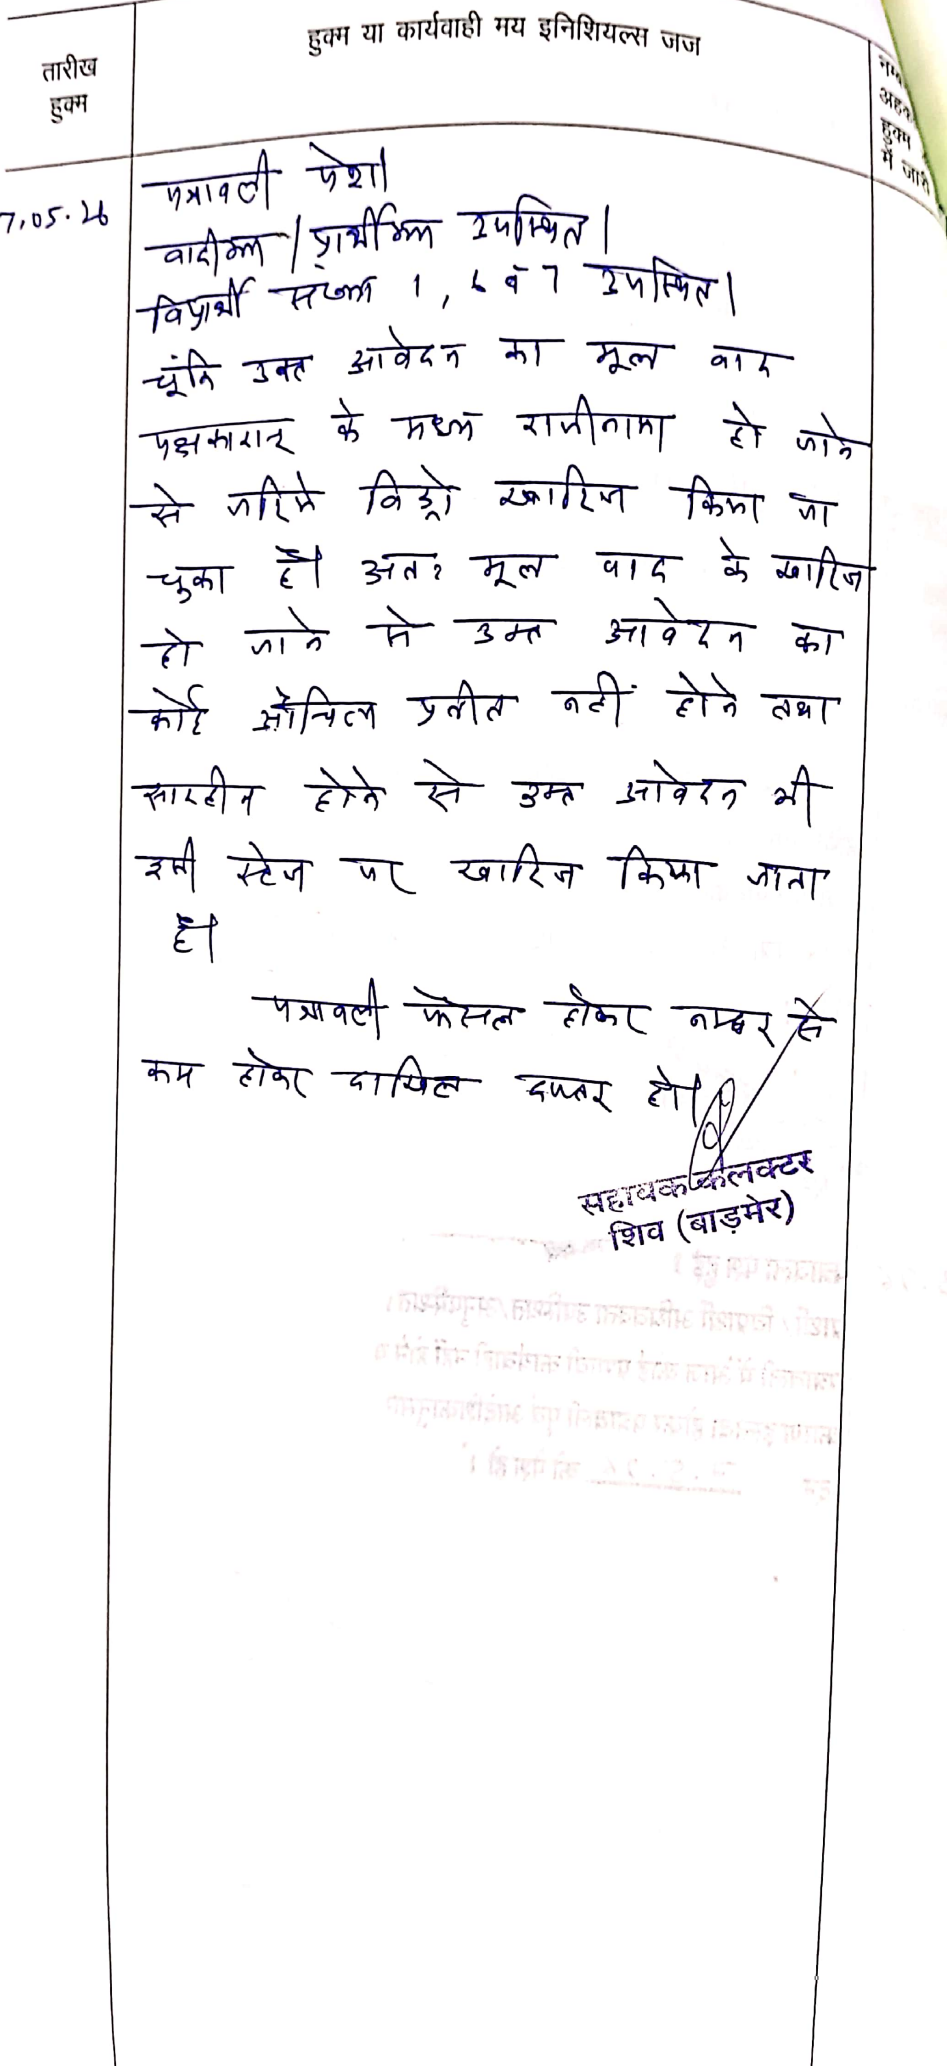 तारीख
हुक्म
हुक्म या कार्यवाही मय इनिशियल्स जज
हुक्म
में जारी
7.05.26
पत्रावली पेश।
वादीगण / प्रार्थीगण उपस्थित।
विप्रार्थी संख्या 1, 6 व 7 उपस्थित।
चूंकि उक्त आवेदन का मूल वाद
पक्षकारान् के मध्य राजीनामा हो जाने
से जरिये विड्रो खारिज किया जा
चुका है। अतः मूल वाद के खारिज
हो जाने से उक्त आवेदन का
कोई औचित्य प्रतीत नहीं होने तथा
सारहीन होने से उक्त आवेदन भी
इसी स्टेज पर खारिज किया जाता
है।
पत्रावली फैसल होकर नम्बर से
कम होकर दाखिल दफ्तर हो।
सहायक कलक्टर
शिव (बाड़मेर)